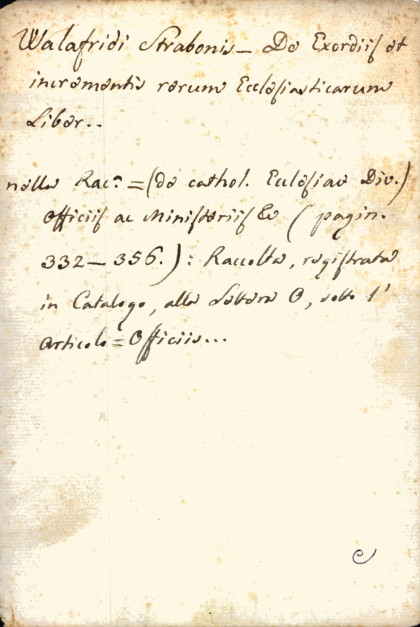 Walafridi Strabonis — De Exordiis et
incrementis rerum Ecclesiasticarum
Liber..
nella Rac.ª = (de cathol. Ecclesiae Div.)
Officiis ac Ministeriis &c (pagin.
332 — 356.) : Raccolta, registrata
in Catalogo, alla Lettera O, sotto l'
articolo = Officiis...